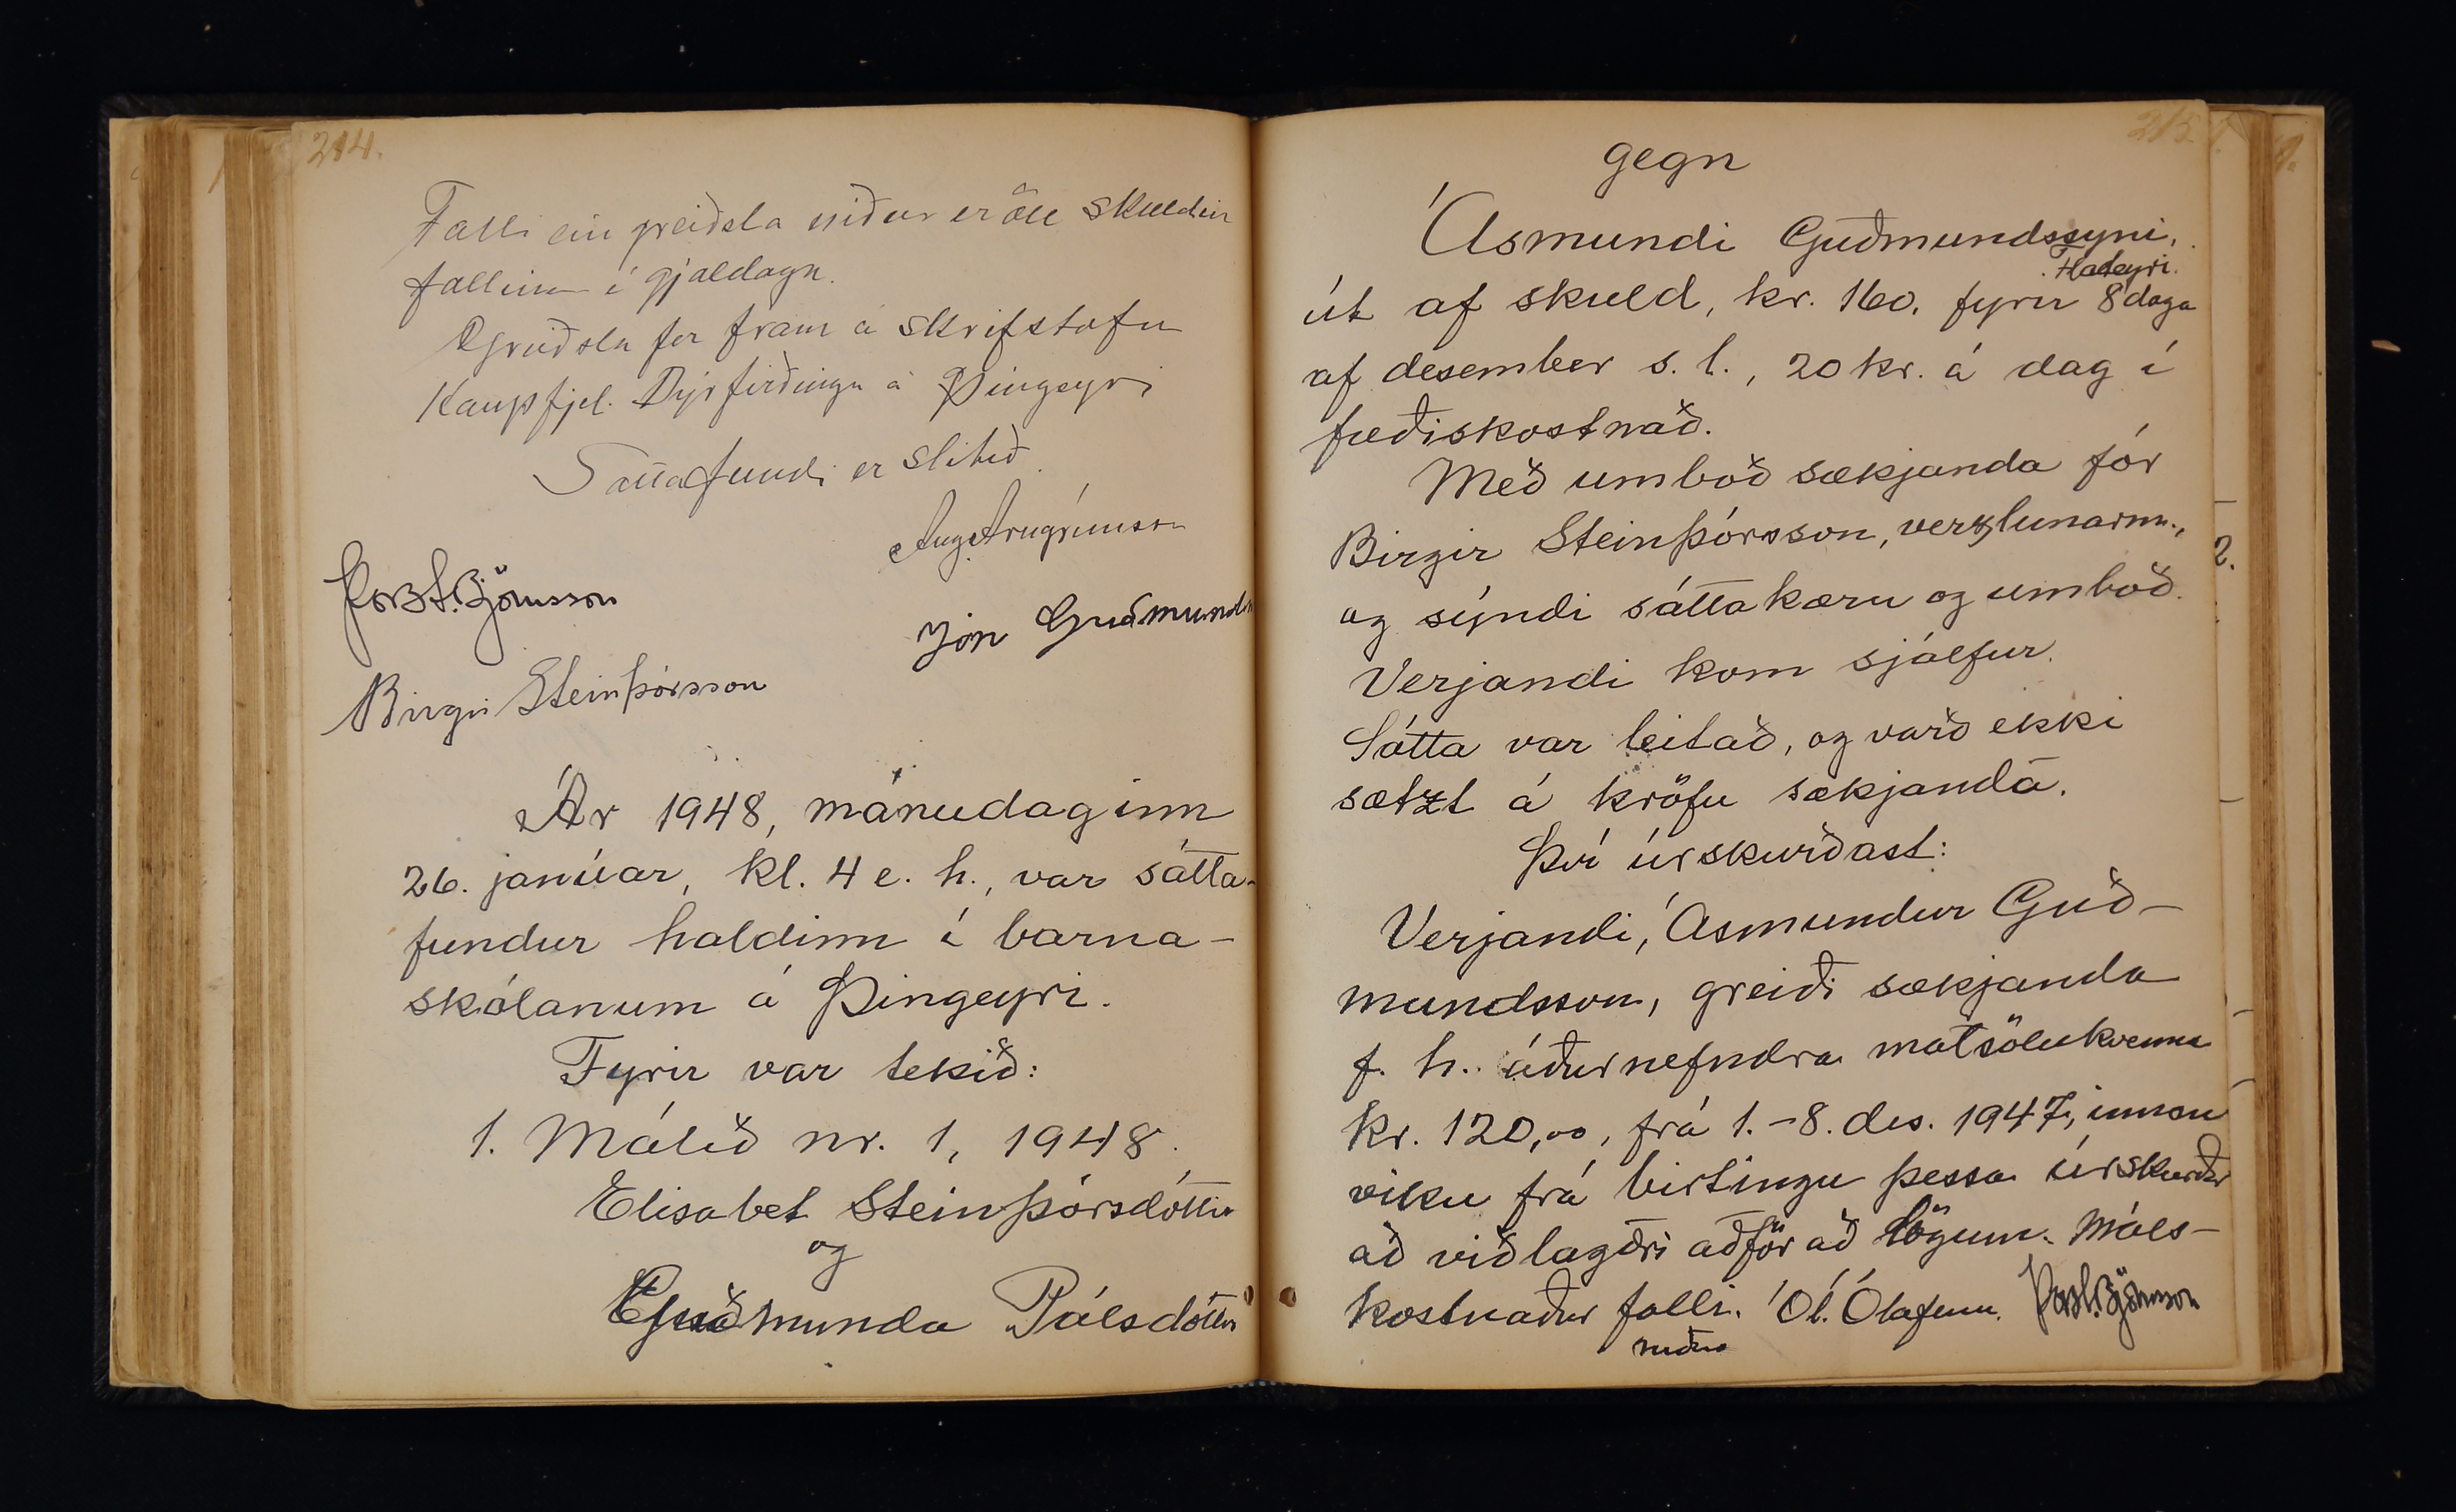 214.
Falli ein greiðsla niður er öll skuldin
fallin í gjalddaga.
Greiðsla fer fram á skrifstofu
Kaupfjel. Dýrfirðinga á Þingeyri
Sáttafundi er slitið.
Ang. Arngrímsson
Þorst. Björnsson
Jón Guðmunds
Birgir Steinþórsson
Ár 1948, mánudaginn
26. janúar, kl. 4 e. h., var sátta-
fundur haldinn í barna-
skólanum á Þingeyri.
Fyrir var tekið:
1. Málið nr. 1, 1948.
Elisabet Steinþórsdóttir
og
Guðmunda Pálsdóttir
215.
gegn
Ásmundi Guðmundssyni,
Flateyri.
út af skuld, kr. 160. fyrir 8 daga
af desember s. l., 20 kr. á dag í
fæðiskostnað.
Með umboð sækjanda fór
Birgir Steinþórsson, verzlunarm.,
og sýndi sáttakæru og umboð.
Verjandi kom sjálfur.
Sátta var leitað, og varð ekki
sætzt á kröfu sækjanda.
Því úrskurðast:
Verjandi, Ásmundur Guð-
mundsson, greiði sækjanda
f. h. áðurnefndra matsölukvenna
kr. 120,00, frá 1.-8. des. 1947, innan
viku frá birtingu þessa úrskurðar
að viðlagðri aðför að lögum. Máls-
kostnaður falli. Ól. Ólafsson. Þorst. Björnsson
niður
2.